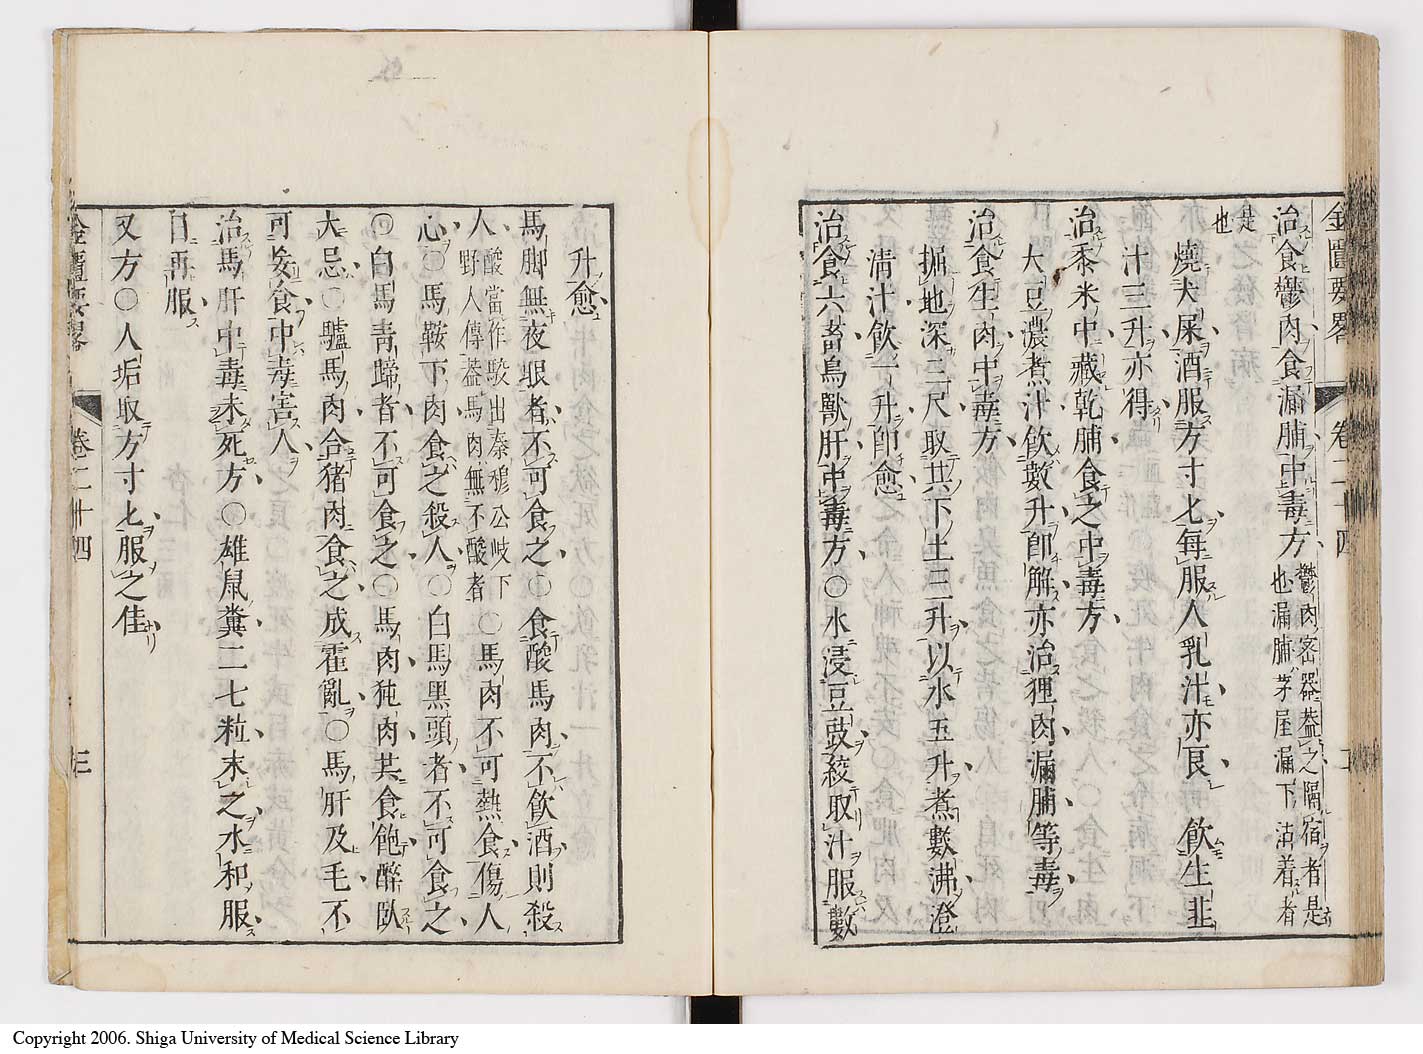 金匱要畧 卷二十四 二
治食鬱肉食漏脯中毒方 鬱肉密器蓋之隔宿者是
也漏脯茅屋漏下沾着者
是
也
燒犬屎酒服方寸匕每服人乳汁亦良 飲生韭
汁三升亦得
治黍米中藏乾脯食之中毒方
大豆濃煮汁飲數升即解亦治狸肉漏脯等毒
治食生肉中毒方
掘地深三尺取其下土三升以水五升煮數沸澄
清汁飲一升即愈
治食六畜鳥獸肝中毒方〇水浸豆豉絞取汁服數
升愈
馬脚無夜眼者不可食之〇食酸馬肉不飲酒則殺
人 酸當作駿出秦穆公岐下
野人傳蓋馬肉無不酸者 〇馬肉不可熱食傷人
心〇馬鞍下肉食之殺人〇白馬黑頭者不可食之
〇白馬青蹄者不可食之〇馬肉㹠肉共食飽醉臥
大忌〇驢馬肉合猪肉食之成霍亂〇馬肝及毛不
可妄食中毒害人
治馬肝中毒未死方〇雄鼠糞二七粒末之水和服
日再服
又方〇人垢取方寸匕服之佳
金匱要畧 卷二十四 三
Copyright 2006. Shiga University of Medical Science Library